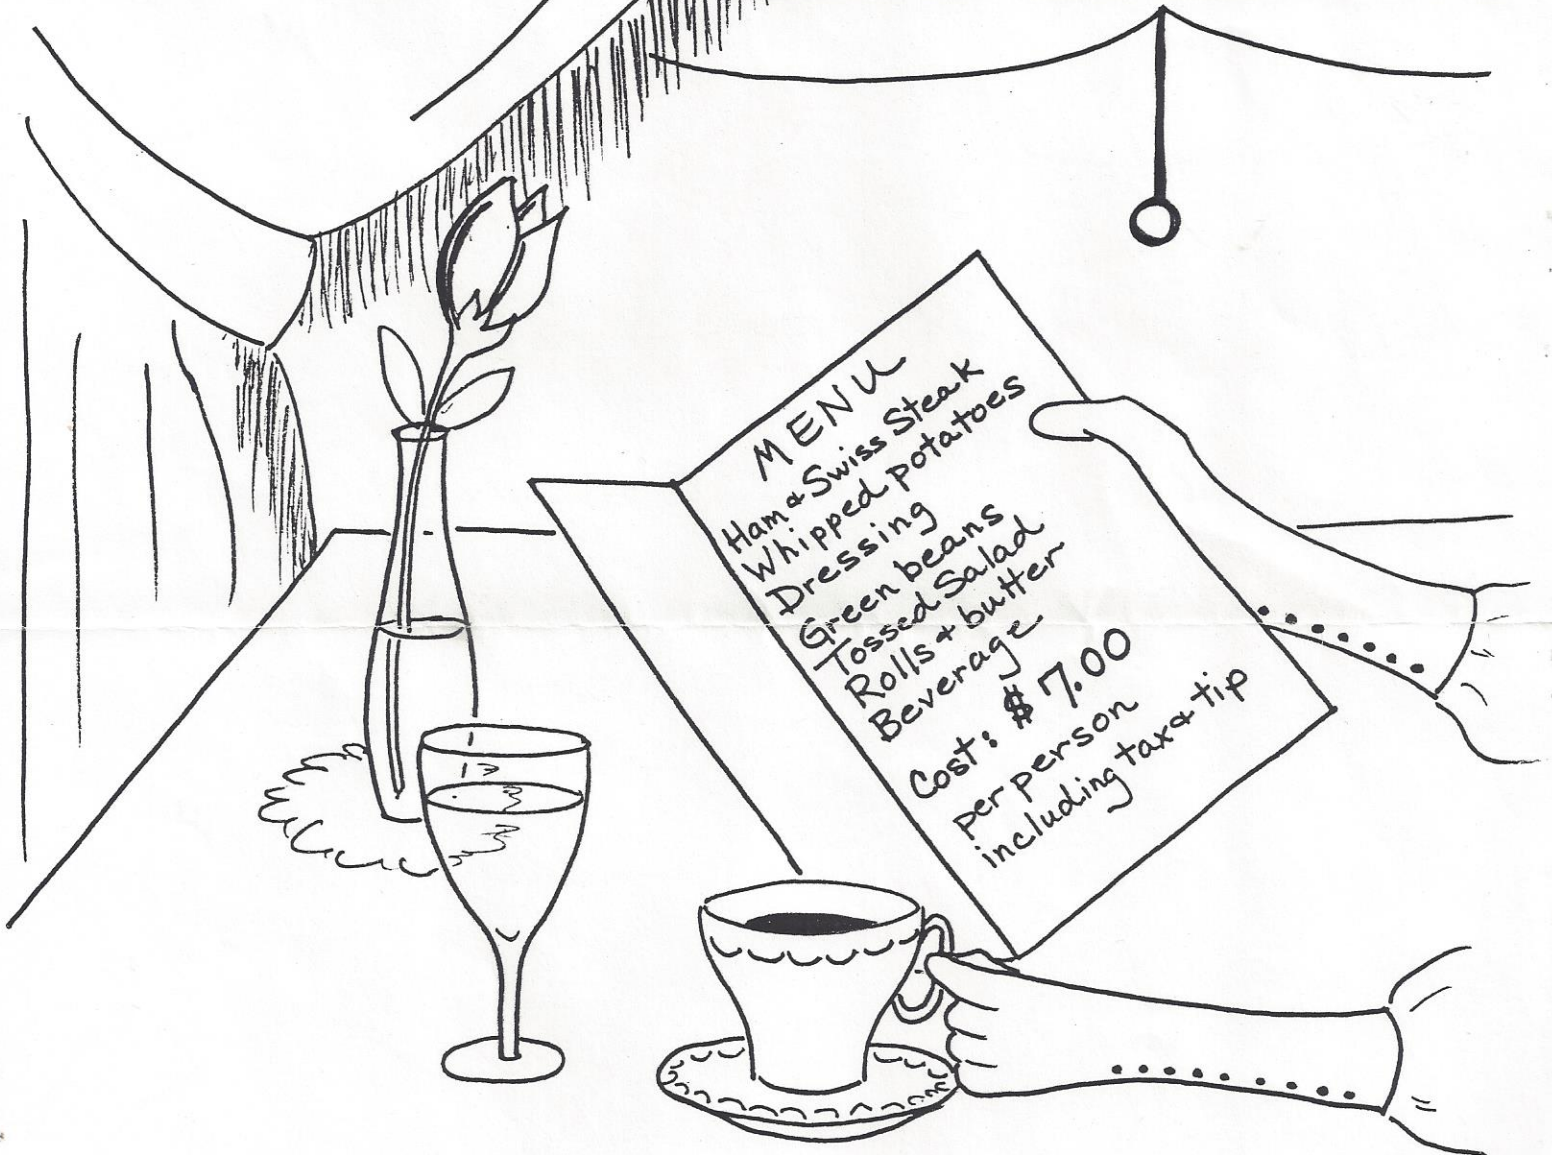 MENU
Ham & Swiss Steak
Whipped potatoes
Dressing
Green beans
Tossed Salad
Rolls & butter
Beverage
Cost: $7.00
per person
including tax & tip